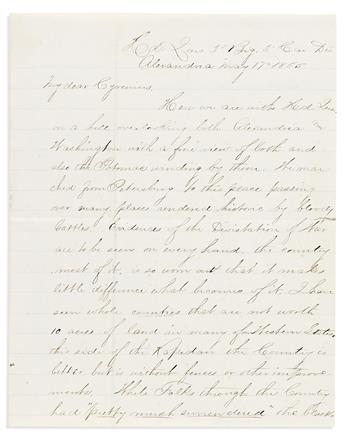 Hd Qrs 3d Brig 2d Cav Div
Alexandria May 17th 1865
My dear Cyrenius,
Here we are with Hd Qrs
on a hill overlooking both Alexandria &
Washington with a fine view of both and
also the Potomac winding by them. We mar
ched from Petersburg to this place passing
over many places rendered historic by bloody
battles. Evidences of the Devistation of War
are to be seen on every hand. the country
most of it, is so worn out that it makes
little difference what becomes of it. I have
seen whole counties that are not worth
10 acres of land in many of Western States
this side of the Rapidan the Country is
better but is without fences or other improve
ments. White Folks through the Country
had "pretty much surrendered" the Blacks